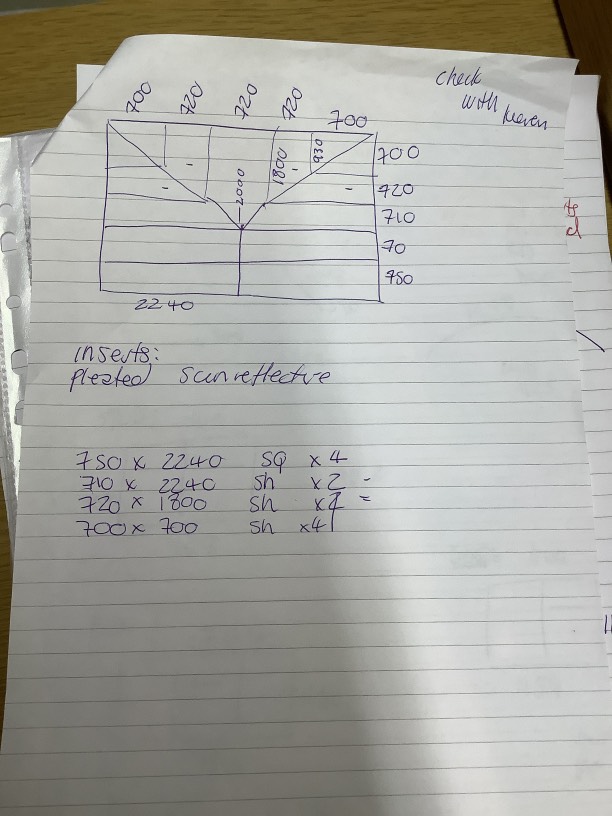 check
with
700 720 720 720 700
700
720
710
70
750
2000
1800
930
2240
inserts:
pleated sunreflective
750 x 2240 SQ x 4
710 x 2240 Sh x 2 -
720 x 1800 Sh =
700 x 700 Sh x4